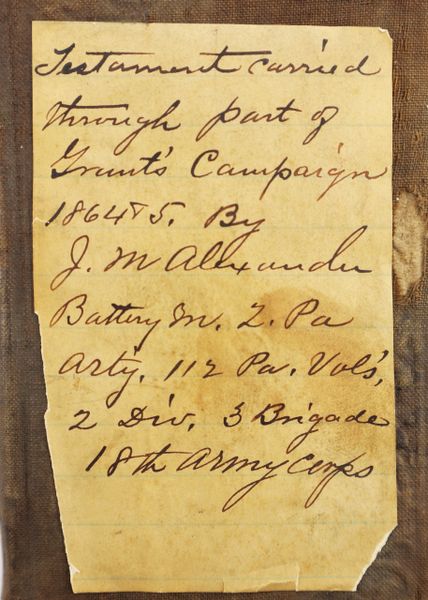 Testament carried
through part of
Grant's Campaign
1864&5. By
J. M Alexander
Battery M. 2. Pa
Arty. 112 Pa. Vol's,
2 Div. 3 Brigade
18th Army Corps